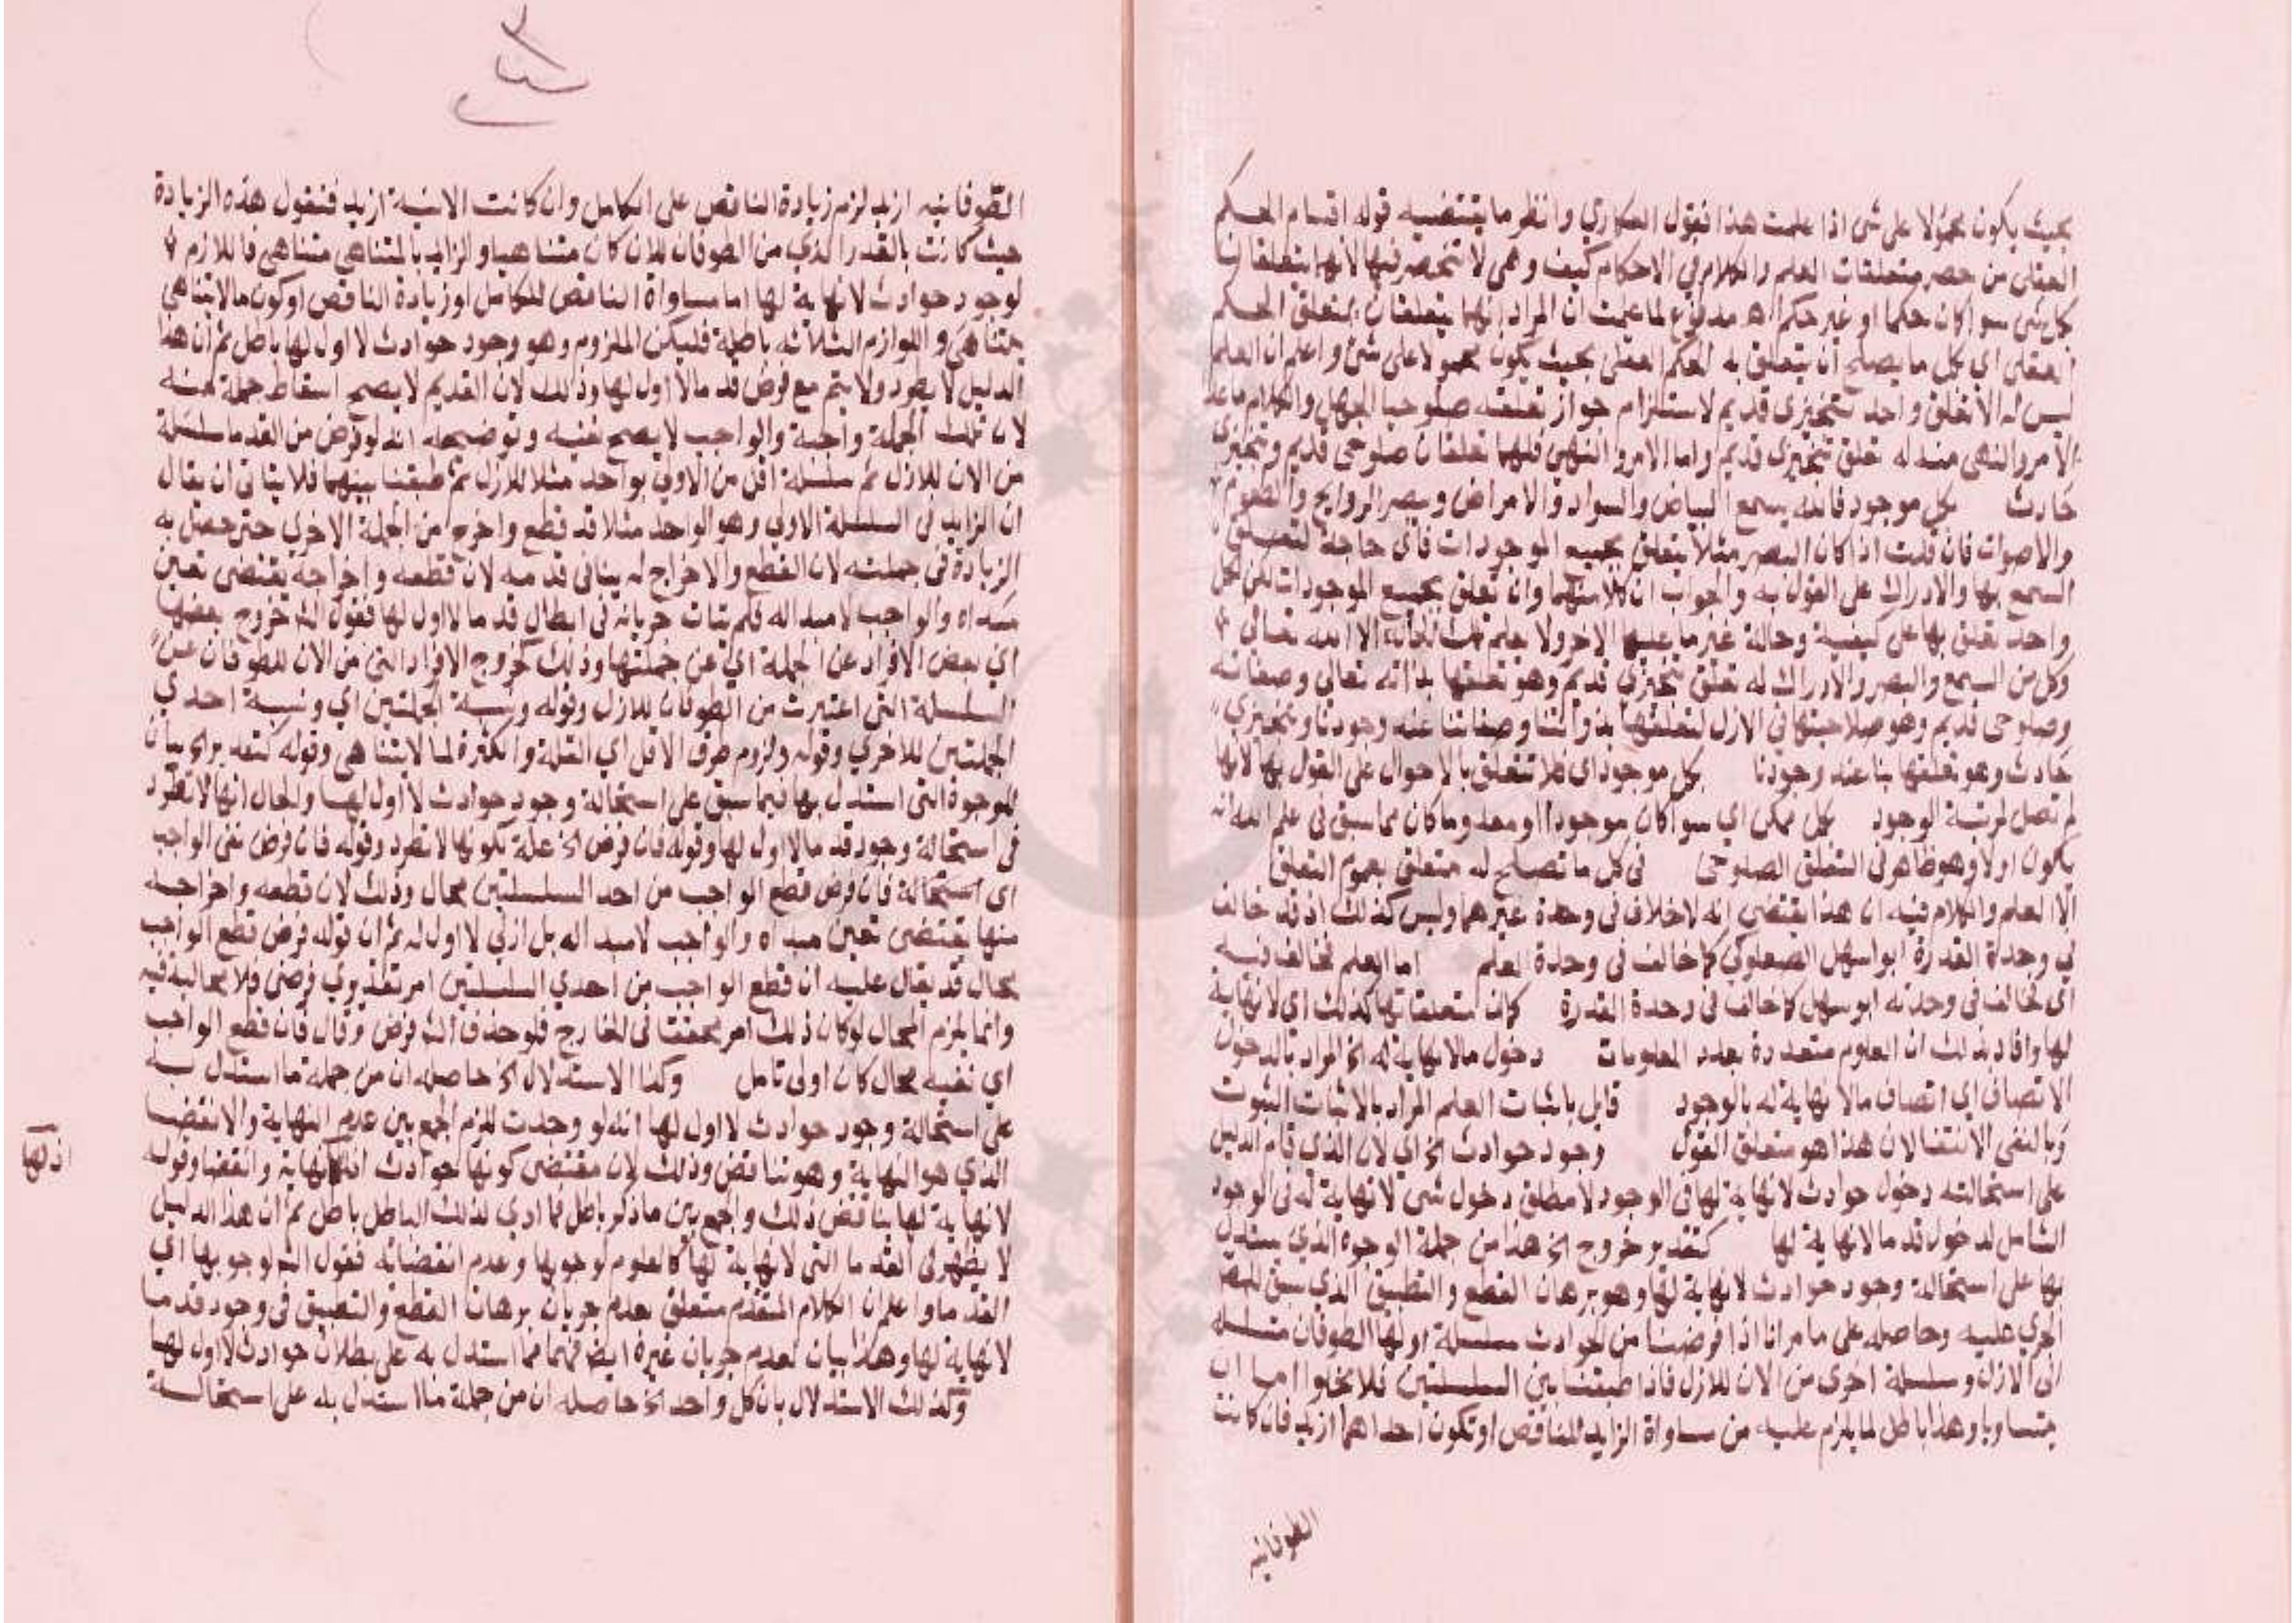 بحيث يكون محمولا على شى اذا علمت هذا فقول العكاري وانظر ما يقتضيه قوله اقسام الحكم
العقلى من حصر متعلقات العلم والكلام في الاحكام كيف وهى لا تنحصر فيها لانهما يتعلقان
بكل شى سوا كان حكما او غير حكم اه مدفوع لما علمت ان المراد انهما يتعلقان بمتعلق الحكم
العقلى اي بكل ما يصلح ان يتعلق به الحكم العقلى بحيث يكون محمولا على شى واعلم ان العلم
ليس له الا تعلق واحد تنجيزى قديم لاستلزام جواز تعلقه صلوحيا الجهل والكلام ما عدا
الامر والنهى منه له تعلق تنجيزى قديم واما الامر والنهى فلهما تعلقان صلوحى قديم وتنجيزى
حادث بكل موجود فانه يسمع البياض والسواد والامراض ويبصر الروايح والطعوم
والاصوات فان قلت اذا كان البصر مثلا يتعلق بجميع الموجودات فاى حاجة لتعلق
السمع بها والادراك على القول به والجواب ان كلا منهما وان تعلق بجميع الموجودات لكن كل
واحد تعلق بها على كيفية وحالة غير ما عليها الاخر ولا يعلم تلك الحالة الا الله تعالى
وكل من السمع والبصر والادراك له تعلق تنجيزى قديم وهو تعلقها بذاته تعالى وصفاته
وصلوحى قديم وهو صلاحيتها فى الازل لتعلقها بذواتنا وصفاتنا عند وجودنا وتنجيزى
حادث وهو تعلقها بنا عند وجودنا بكل موجود اى فلا تتعلق بالاحوال على القول بها لانها
لم تصل لمرتبة الوجود بكل ممكن اي سوا كان موجودا او معدوما كان مما سبق فى علم الله انه
يكون اولا وهو ظاهر فى التعلق الصلوحى فى كل ما تصلح له متعلق بعموم التعلق
الا العلم والكلام فيه ان هذا يقتضى انه لا خلاف فى وحدة غيرهما وليس كذلك اذ قد خالف
في وحدة القدرة ابو سهل الصعلوكي كما خالف فى وحدة العلم اما العلم فخالف فيه
اى خالف فى وحدته ابو سهل كما خالف فى وحدة القدرة كان متعلقاتها كذلك اي لا نهاية
لها وافاد بذلك ان العلوم متعددة بعدد المعلومات دخول ما لا نهاية له الخ المراد بالدخول
الاتصاف اي اتصاف ما لا نهاية له بالوجود قابل باثبات العلم المراد بالاثبات الثبوت
وبالنفى الانتفا لان هذا هو متعلق القول وجود حوادث الخ اى لان الذى قام الدليل
على استحالته دخول حوادث لا نهاية لها فى الوجود لا مطلق دخول شى لا نهاية له فى الوجود
الشامل لدخول قدما لا نهاية لها كتقدير خروج الخ هذا من جملة الوجوه الذي يستدل
بها على استحالة وجود حوادث لا نهاية لها وهو برهان القطع والتطبيق الذي سبق للمص
الجرى عليه وحاصله على ما مر انا اذا فرضنا من الحوادث سلسلة اولها الطوفان متسلسلة
الى الازل وسلسلة اخرى من الان للازل فاذا طبقنا بين السلسلتين فلا يخلوا اما ان
يتساويا وهذا باطل لما يلزم عليه من مساواة الزايد للناقص او تكون احداهما ازيد فان كانت
الطوفانيه
الطوفانيه ازيد لزم زيادة الناقص على الكامل وان كانت الانية ازيد فنقول هذه الزيادة
حيث كانت بالقدر الذي من الطوفان للان كان متناهيا والزايد بالمتناهى متناهى فاللازم
لوجود حوادث لا نهاية لها اما مساواة الناقص للكامل او زيادة الناقص او كون ما لا يتناهى
متناهى واللوازم الثلاثه باطلة فليكن الملزوم وهو وجود حوادث لا اول لها باطل ثم ان هذا
الدليل لا يعود ولا يتم مع فرض قدما لا اول لها وذلك لان القديم لا يصح اسقاط جملة منه
لان تلك الجملة واجبة والواجب لا يصح نفيه وتوضيحه انه لو فرض من القدما سلسلة
من الان للازل ثم سلسلة اقل من الاولى بواحد مثلا للازل ثم طبقنا بينهما فلا يتاتى ان يقال
ان الزايد فى السلسلة الاولى وهو الواحد مثلا قد قطع واخرج من الجملة الاخرى حتى حصل به
الزيادة فى جملته لان القطع والاخراج له ينافى قدمه لان قطعه واخراجه يقتضى تعين
مبداه والواجب لا مبدا له فلم يتات جريانه فى ابطال قدما لا اول لها فقوله الله خروج بعضها
اي بعض الافراد عن الجملة اي عن جملتها وذلك كخروج الافراد التى من الان للطوفان عن
السلسلة التى اعتبرت من الطوفان للازل وقوله ونسبة الجملتين اي ونسبة احدى
الجملتين للاخرى وقوله ولزوم طرف الاقل اي القلة والكثرة لما لا يتناهى وقوله كتقدير الخ بيان
للوجوه التى استدل بها فيما سبق على استحالة وجود حوادث لا اول لها والحال انها لا تطرد
فى استحالة وجود قدما لا اول لها وقوله فان فرض الخ علة لكونها لا تطرد وقوله فان فرض نفى الواجب
اى استحالة فان فرض قطع الواجب من احد السلسلتين محال وذلك لان قطعه واخراجه
منها يقتضى تعين مبداه والواجب لا مبدا له بل ازلى لا اول له ثم ان قوله فرض قطع الواجب
محال قد يقال عليه ان قطع الواجب من احدى السلسلتين امر تقديرى فرضى فلا محالية فيه
وانما يلزم المحال لو كان ذلك امر محققا فى الخارج فلو حذف الله فرض وقال فان قطع الواجب
اي نفيه محال كان اولى تامل وكذا الاستدلال الخ حاصله ان من جملة ما استدل به
على استحالة وجود حوادث لا اول لها انه لو وجدت للزم الجمع بين عدم النهاية والانقضا
الذي هو النهاية وهو تناقض وذلك لان مقتضى كونها حوادث ان لها نهاية وانقضا وقوله
لا نهاية لها يناقض ذلك والجمع بين ما ذكر باطل فما ادى لذلك الباطل باطل ثم ان هذا الدليل
لا يظهر فى القدما التى لا نهاية لها كالعلوم لوجوبها وعدم انقضائه فقول الله لوجوبها اي
القدما واعلم ان الكلام المتقدم متعلق بعدم جريان برهان القطع والتطبيق فى وجود قدما
لا نهاية لها وهذا بيان لعدم جريان غيره ايضا فهما مما استدل به على بطلان حوادث لا اول لها
وكذلك الاستدلال بان كل واحد الخ حاصله ان من جملة ما استدل به على استحالة
ان لها